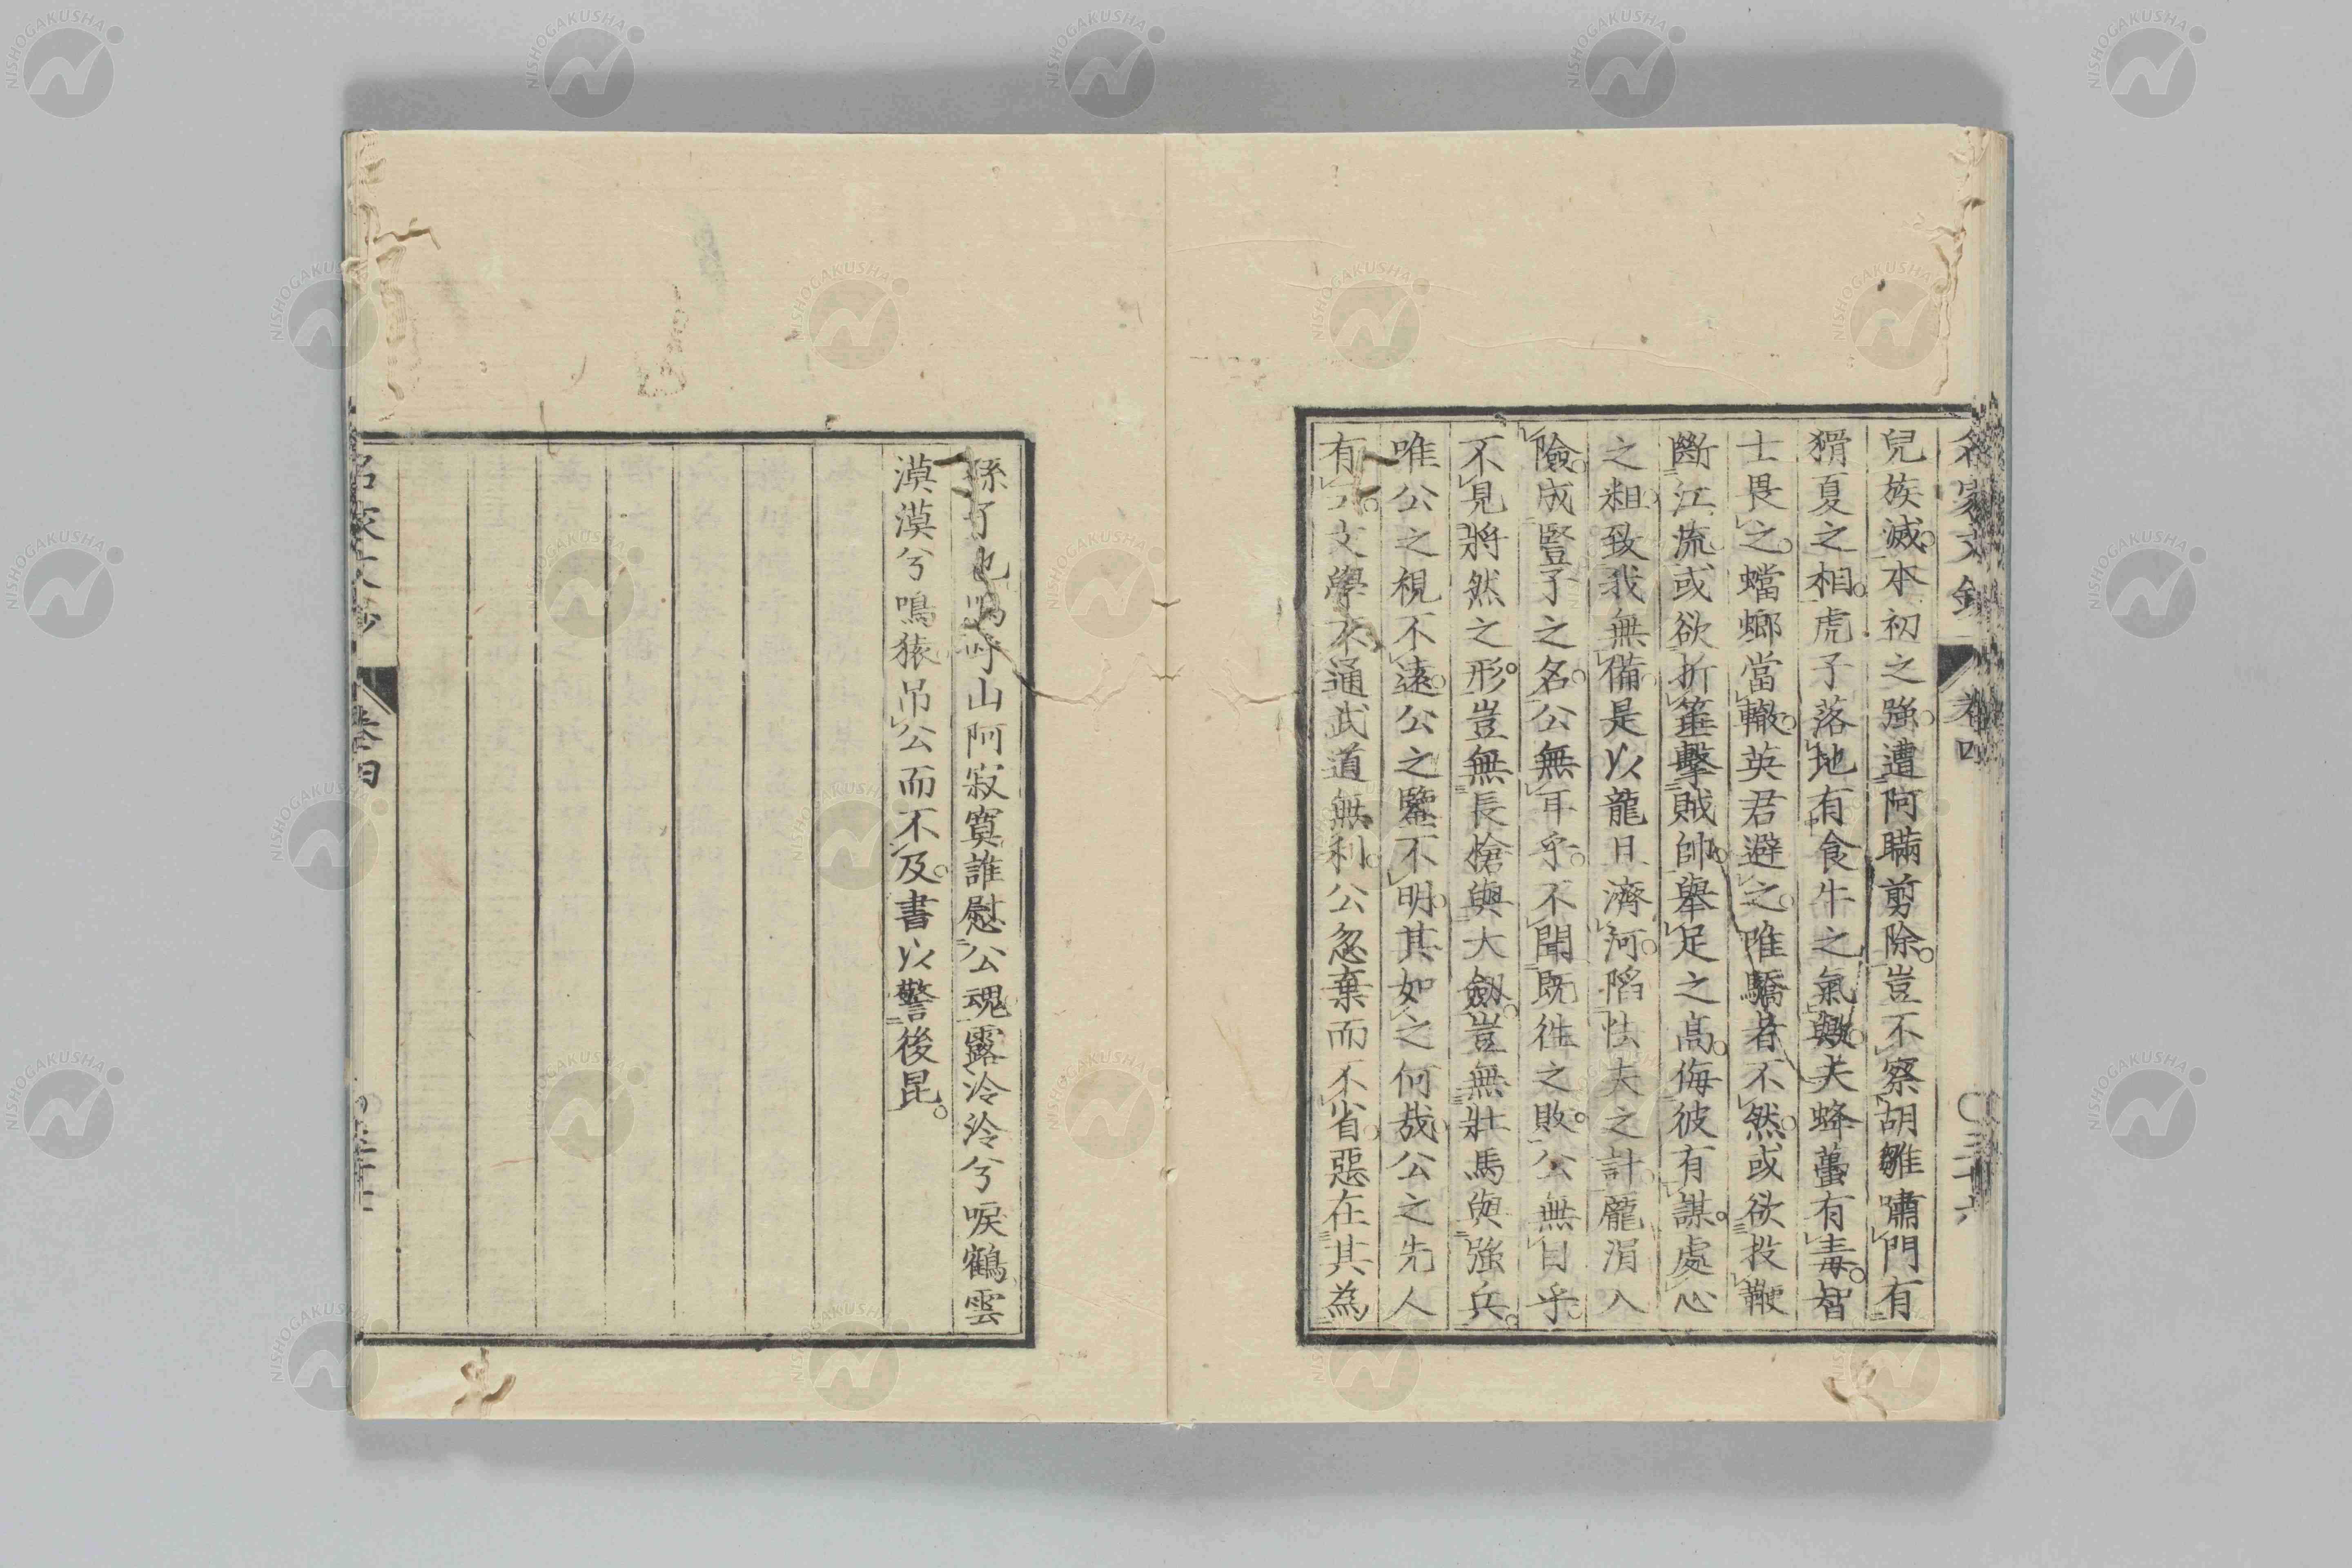 名家文鈔 卷四 〇三十六
兒族滅本初之強遭阿瞞剪除豈不察胡雛嘯門有
猾夏之相虎子落地有食牛之氣歟夫蜂蠆有毒智
士畏之蟷螂當轍英君避之唯驕者不然或欲投鞭
斷江流或欲折箠擊賊帥舉足之高侮彼有謀處心
之粗致我無備是以龍且濟河陷怯夫之計龐涓入
險成豎子之名公無耳乎不聞既徃之敗公無目乎
不見將然之形豈無長槍與大劔豈無壯馬與強兵
唯公之視不遠公之鑒不明其如之何哉公之先人
有文學不通武道無利公忽棄而不省惡在其為
孫子也嗚呼山阿寂寞誰慰公魂露泠泠兮唳鶴雲
漠漠兮鳴猿吊公而不及書以警後昆
名家文鈔 卷四
NISHOGAKUSHA